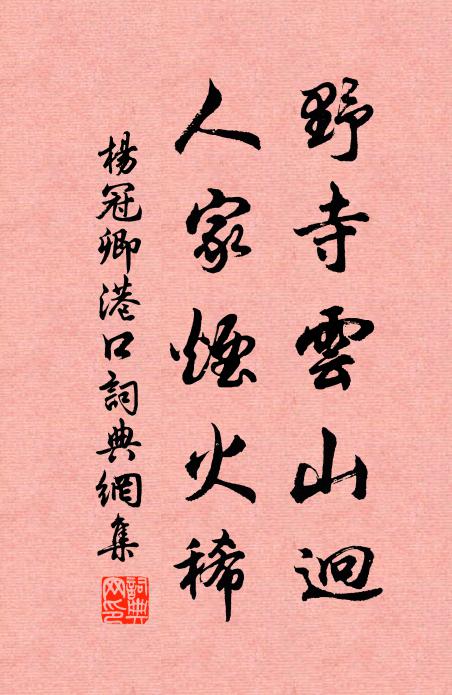 野寺雲山迥
人家煙火稀
楊冠卿港口詞典網集
詞典网印